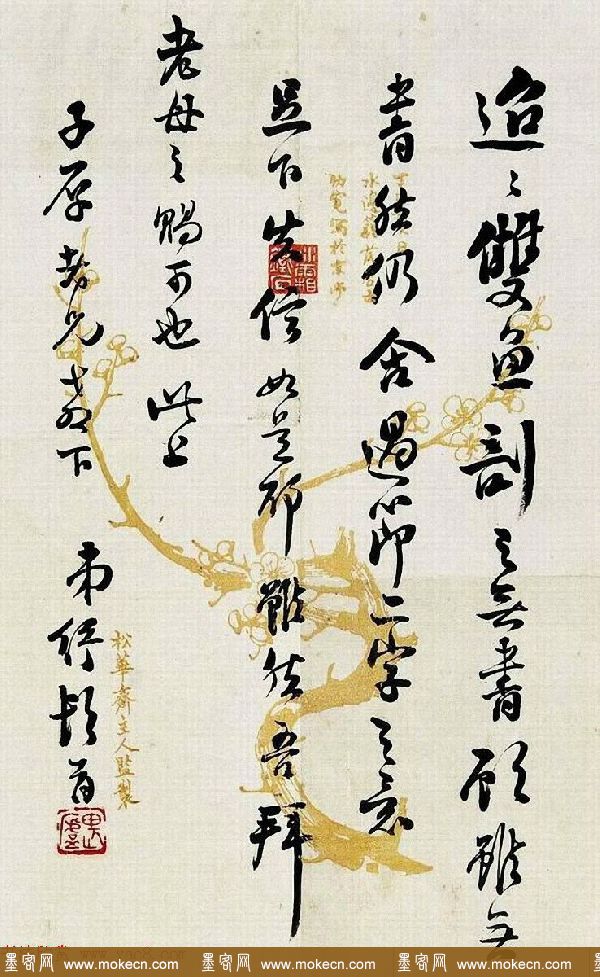 迢〻雙魚剖之無書顧雖無
書然仍舍過節二字之意
足下失信如是耶雖然吾拜
老母之賜可也此上
子厚老兄 下 弟 頓首
松華齋主人監製
墨客网 www.mokecn.com 墨客网 www.mokecn.com 墨客网 www.mokecn.com 墨客网 www.mokecn.com